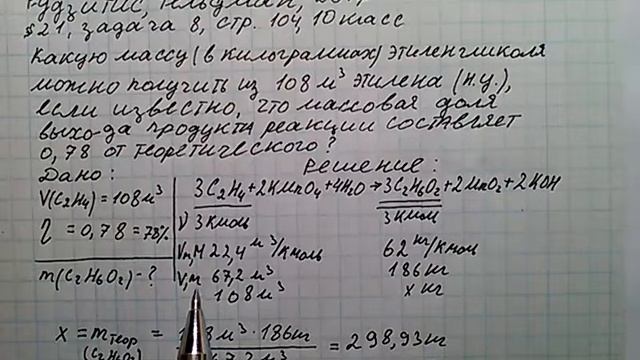 §21, задача 8, стр. 104, 10 класс
Какую массу (в килограммах) этиленгликоля
можно получить из 108 м³ этилена (н.у.),
если известно, что массовая доля
выхода продукта реакции составляет
0,78 от теоретического?
Дано: Решение:
V(C₂H₄)=108 м³
η = 0,78 = 78%
m(C₂H₆O₂)-?
3C₂H₄+2KMnO₄+4H₂O→3C₂H₆O₂+2MnO₂+2KOH
ν 3 кмоль 3 кмоль
Vm,M 22,4 м³/кмоль 62 кг/кмоль
V,m 67,2 м³ 186 кг
108 м³ x кг
x = mтеор = 108 м³ · 186 кг = 298,93 кг
(C₂H₆O₂) 67,2 м³